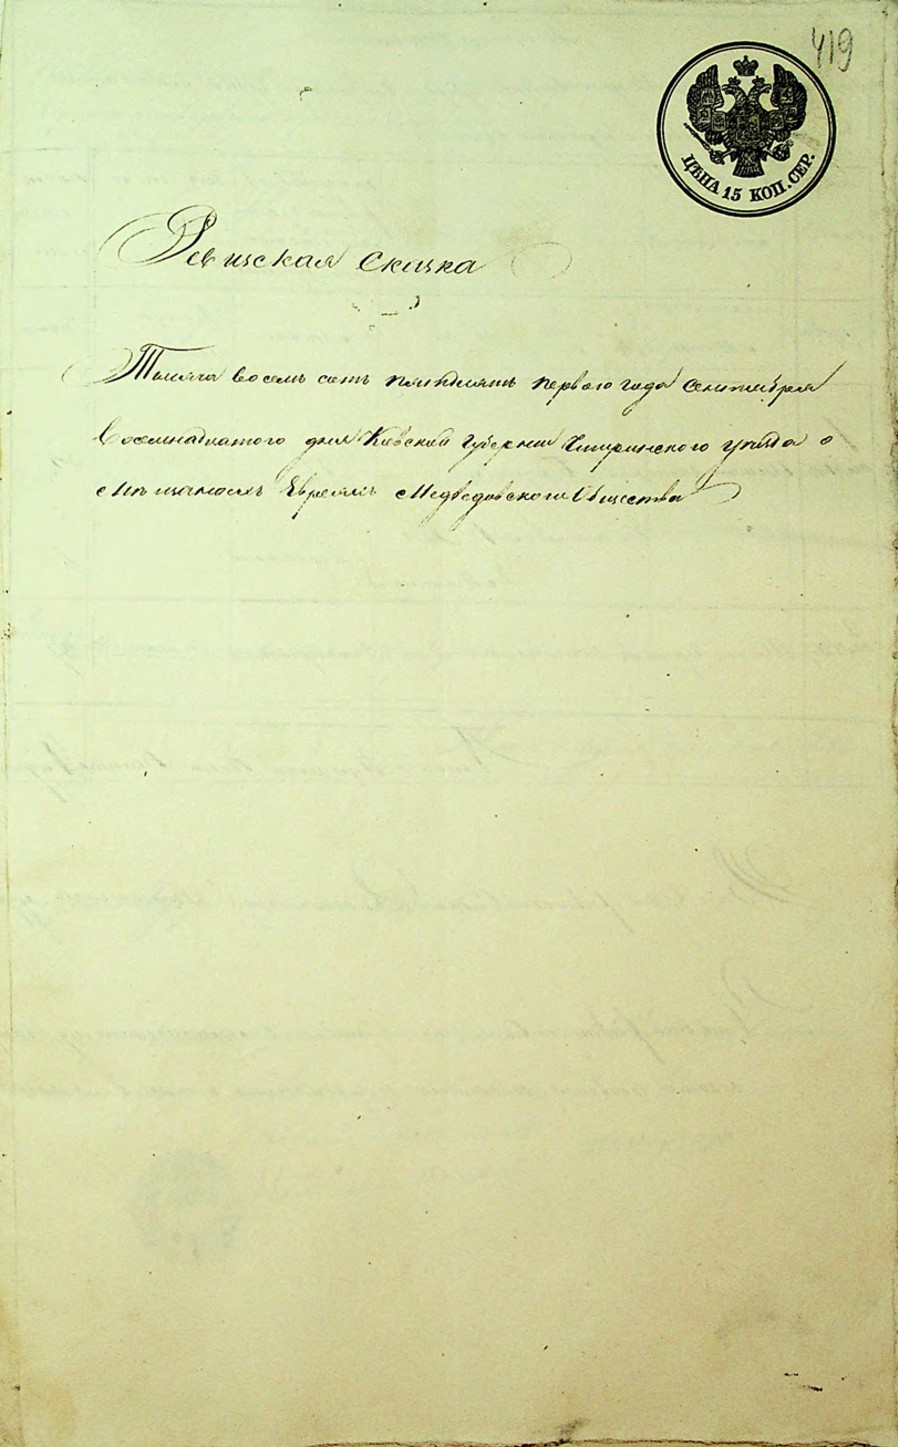 419
ЦѢНА 15 КОП. СЕР.
Ревизская сказка
Тысяча восемь сотъ пятьдесятъ первого года Сентября
Восемнадцатого дня Кіевской Губерніи Чигиринского уѣзда о
мѣщанахъ Евреяхъ Медведовского Общества